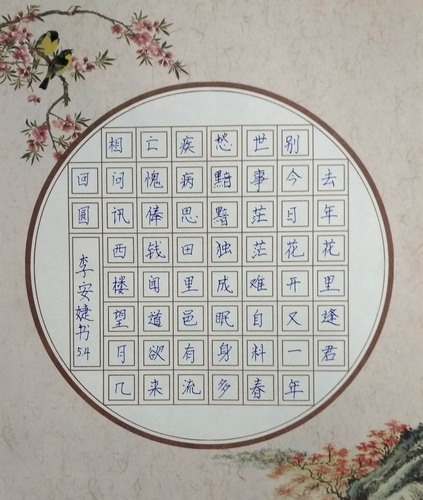 去年花里逢君
别今日花开又一年
世事茫茫难自料春
愁黯黯独成眠身多
疾病思田里邑有流
亡愧俸钱闻道欲来
相问讯西楼望月几
回圆
李安婕书5.4